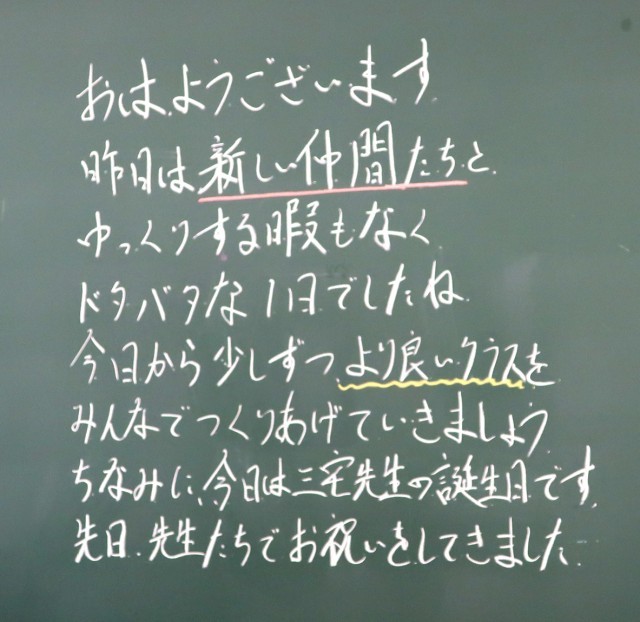 おはようございます
昨日は新しい仲間たちと
ゆっくりする暇もなく
ドタバタな1日でしたね
今日から少しずつより良いクラスを
みんなでつくりあげていきましょう
ちなみに、今日は三宅先生の誕生日です
先日、先生たちでお祝いをしてきました